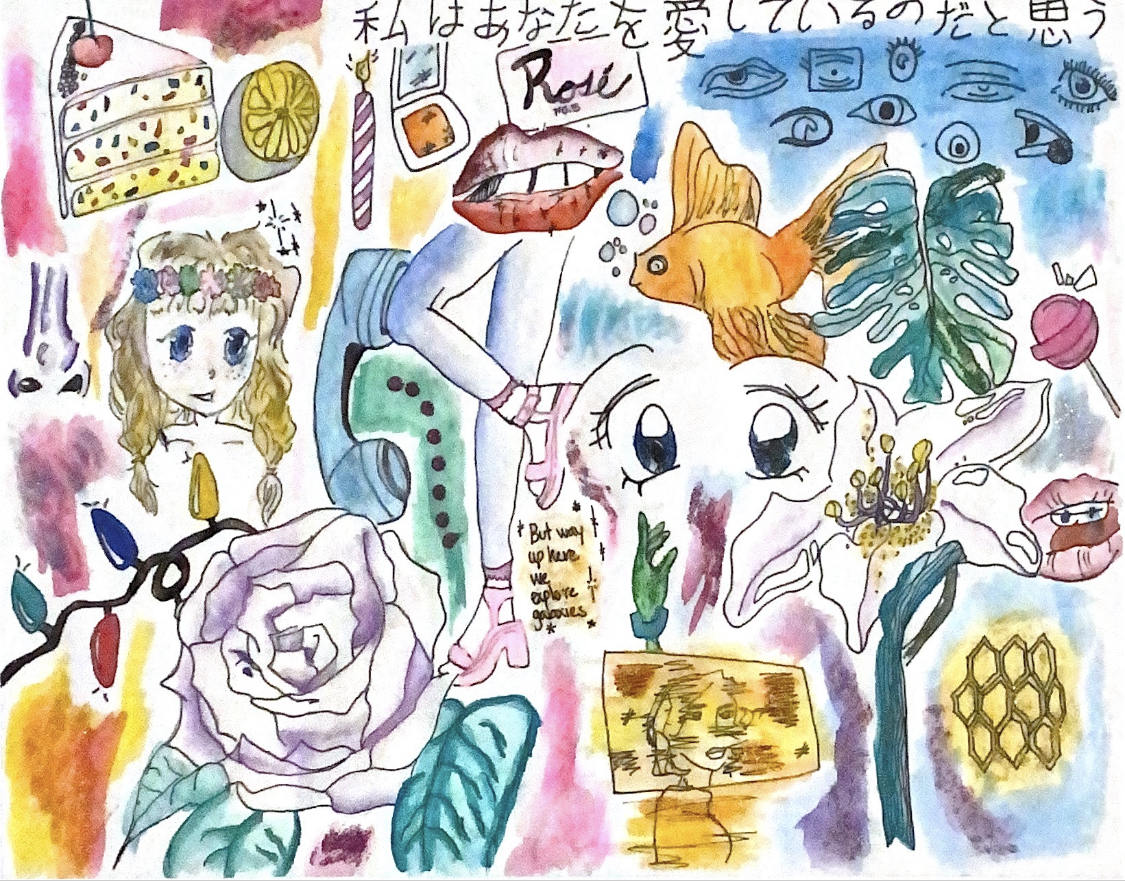 私はあなたを愛しているのだと思う
Rosé
No.5
But way
up here
we
explore
galaxies